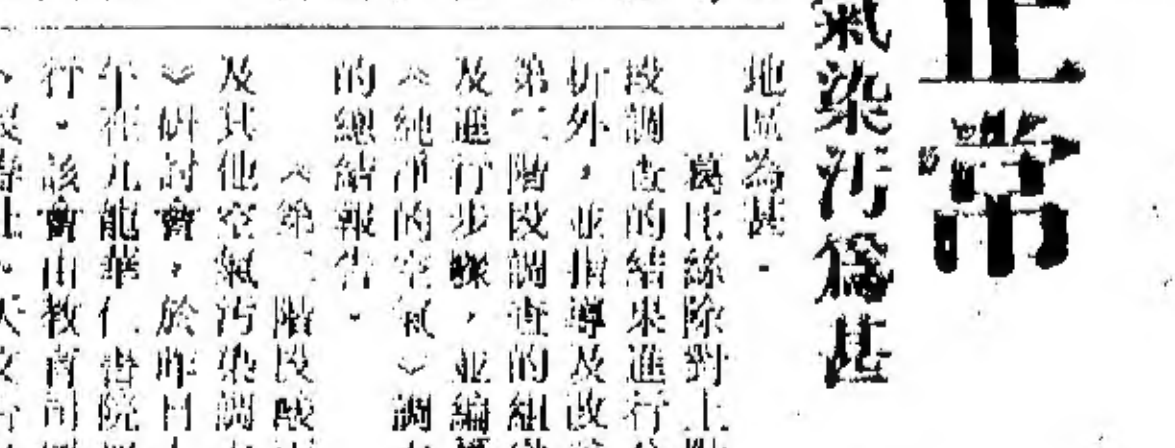 正常
氣染汚爲甚
地區為甚。
葛比絲除對上
段調查的結果進行
折外，並指導及改
第二階段調查的組
及進行步驟，並編
︽純淨的空氣︾調
的總結報告。
︽第二階段酸
及其他空氣汚染調
︾研討會，於昨日
午在九龍華仁書院
行。該會由教育司